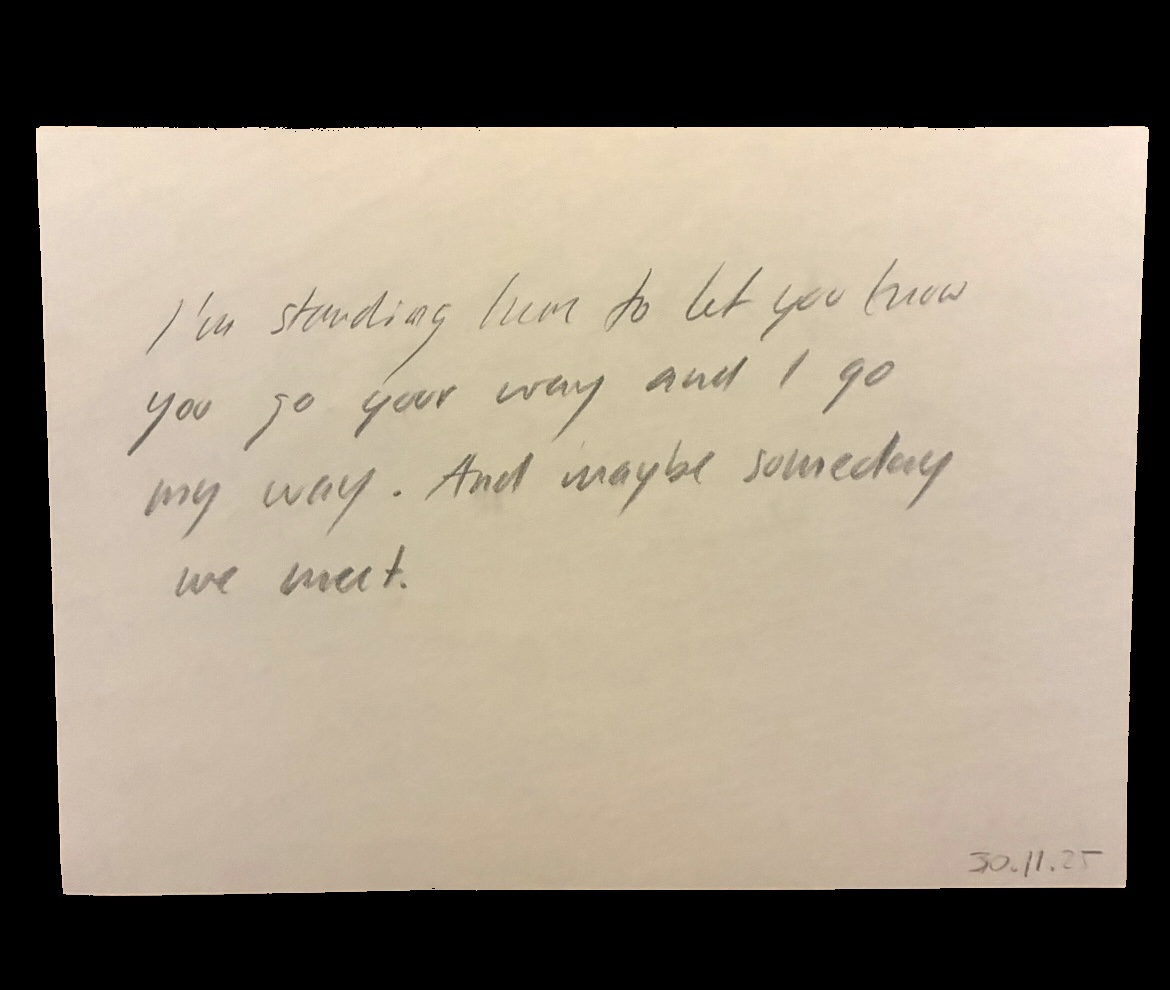 I'm standing here to let you know
you go your way and I go
my way. And maybe someday
we meet.
30.11.25